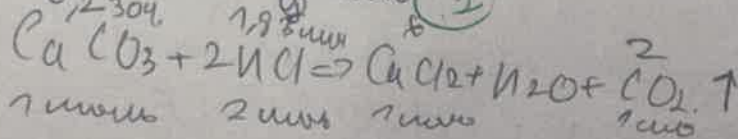 2
CaCO3 + 2HCl => CaCl2 + H2O + CO2 ↑
1 моль 2 моль 1 моль 1 моль